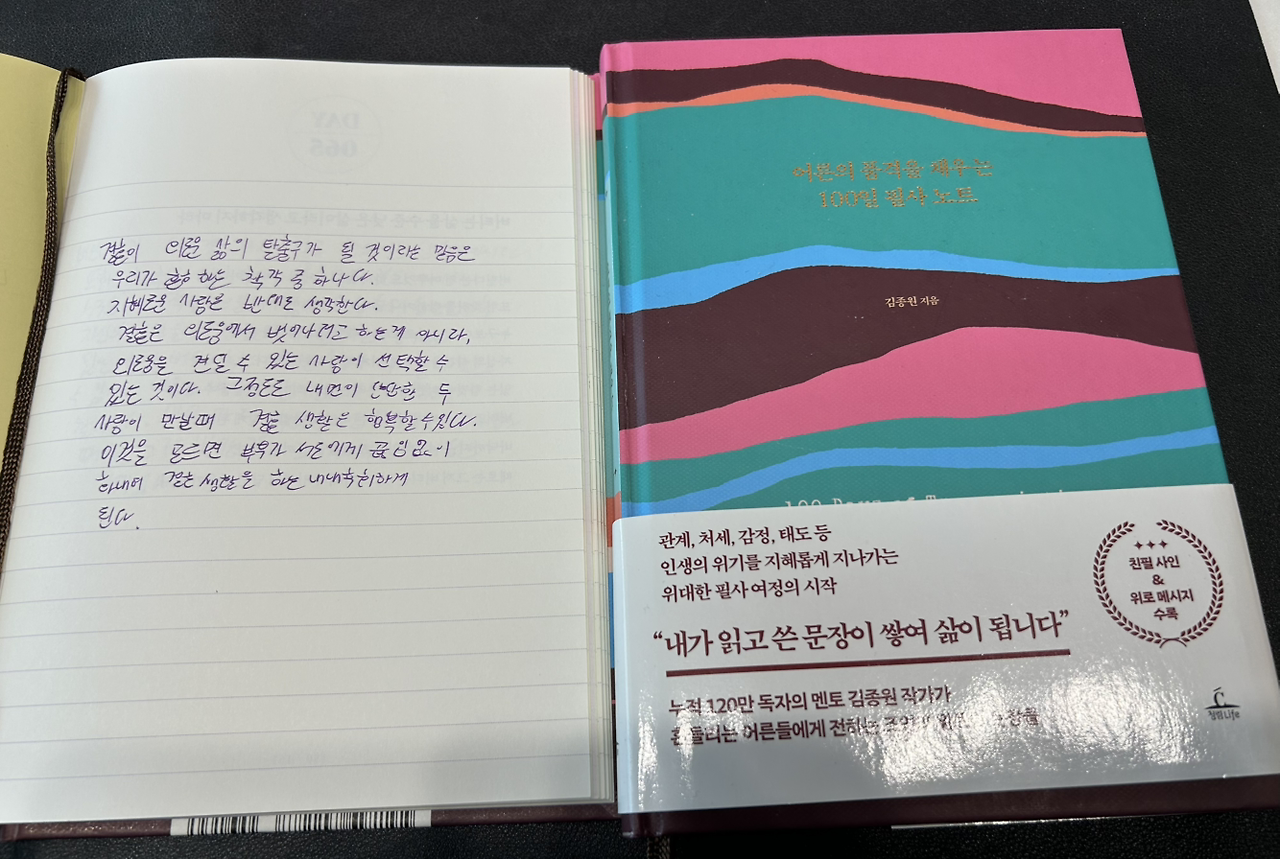 DAY
065
결혼이 외로운 삶의 탈출구가 될 것이라는 믿음은
우리가 흔히 하는 착각 중 하나다.
지혜로운 사람은 반대로 생각한다.
결혼은 외로움에서 벗어나려고 하는게 아니라,
외로움을 견딜 수 있는 사람이 선택할 수
있는 것이다. 그정도로 내면이 단단한 두
사람이 만날때 결혼 생활은 행복할 수 있다.
이것을 모르면 부부가 서로에게
결혼 생활을 하는 내내 후회하게
된다.
어른의 품격을 채우는
100일 필사 노트
김종원 지음
관계, 처세, 감정, 태도 등
인생의 위기를 지혜롭게 지나가는
위대한 필사 여정의 시작
“내가 읽고 쓴 문장이 쌓여 삶이 됩니다”
누적 120만 독자의 멘토 김종원 작가가
흔들리는 어른들에게 전하는
친필 사인
&
위로 메시지
수록
청림Life